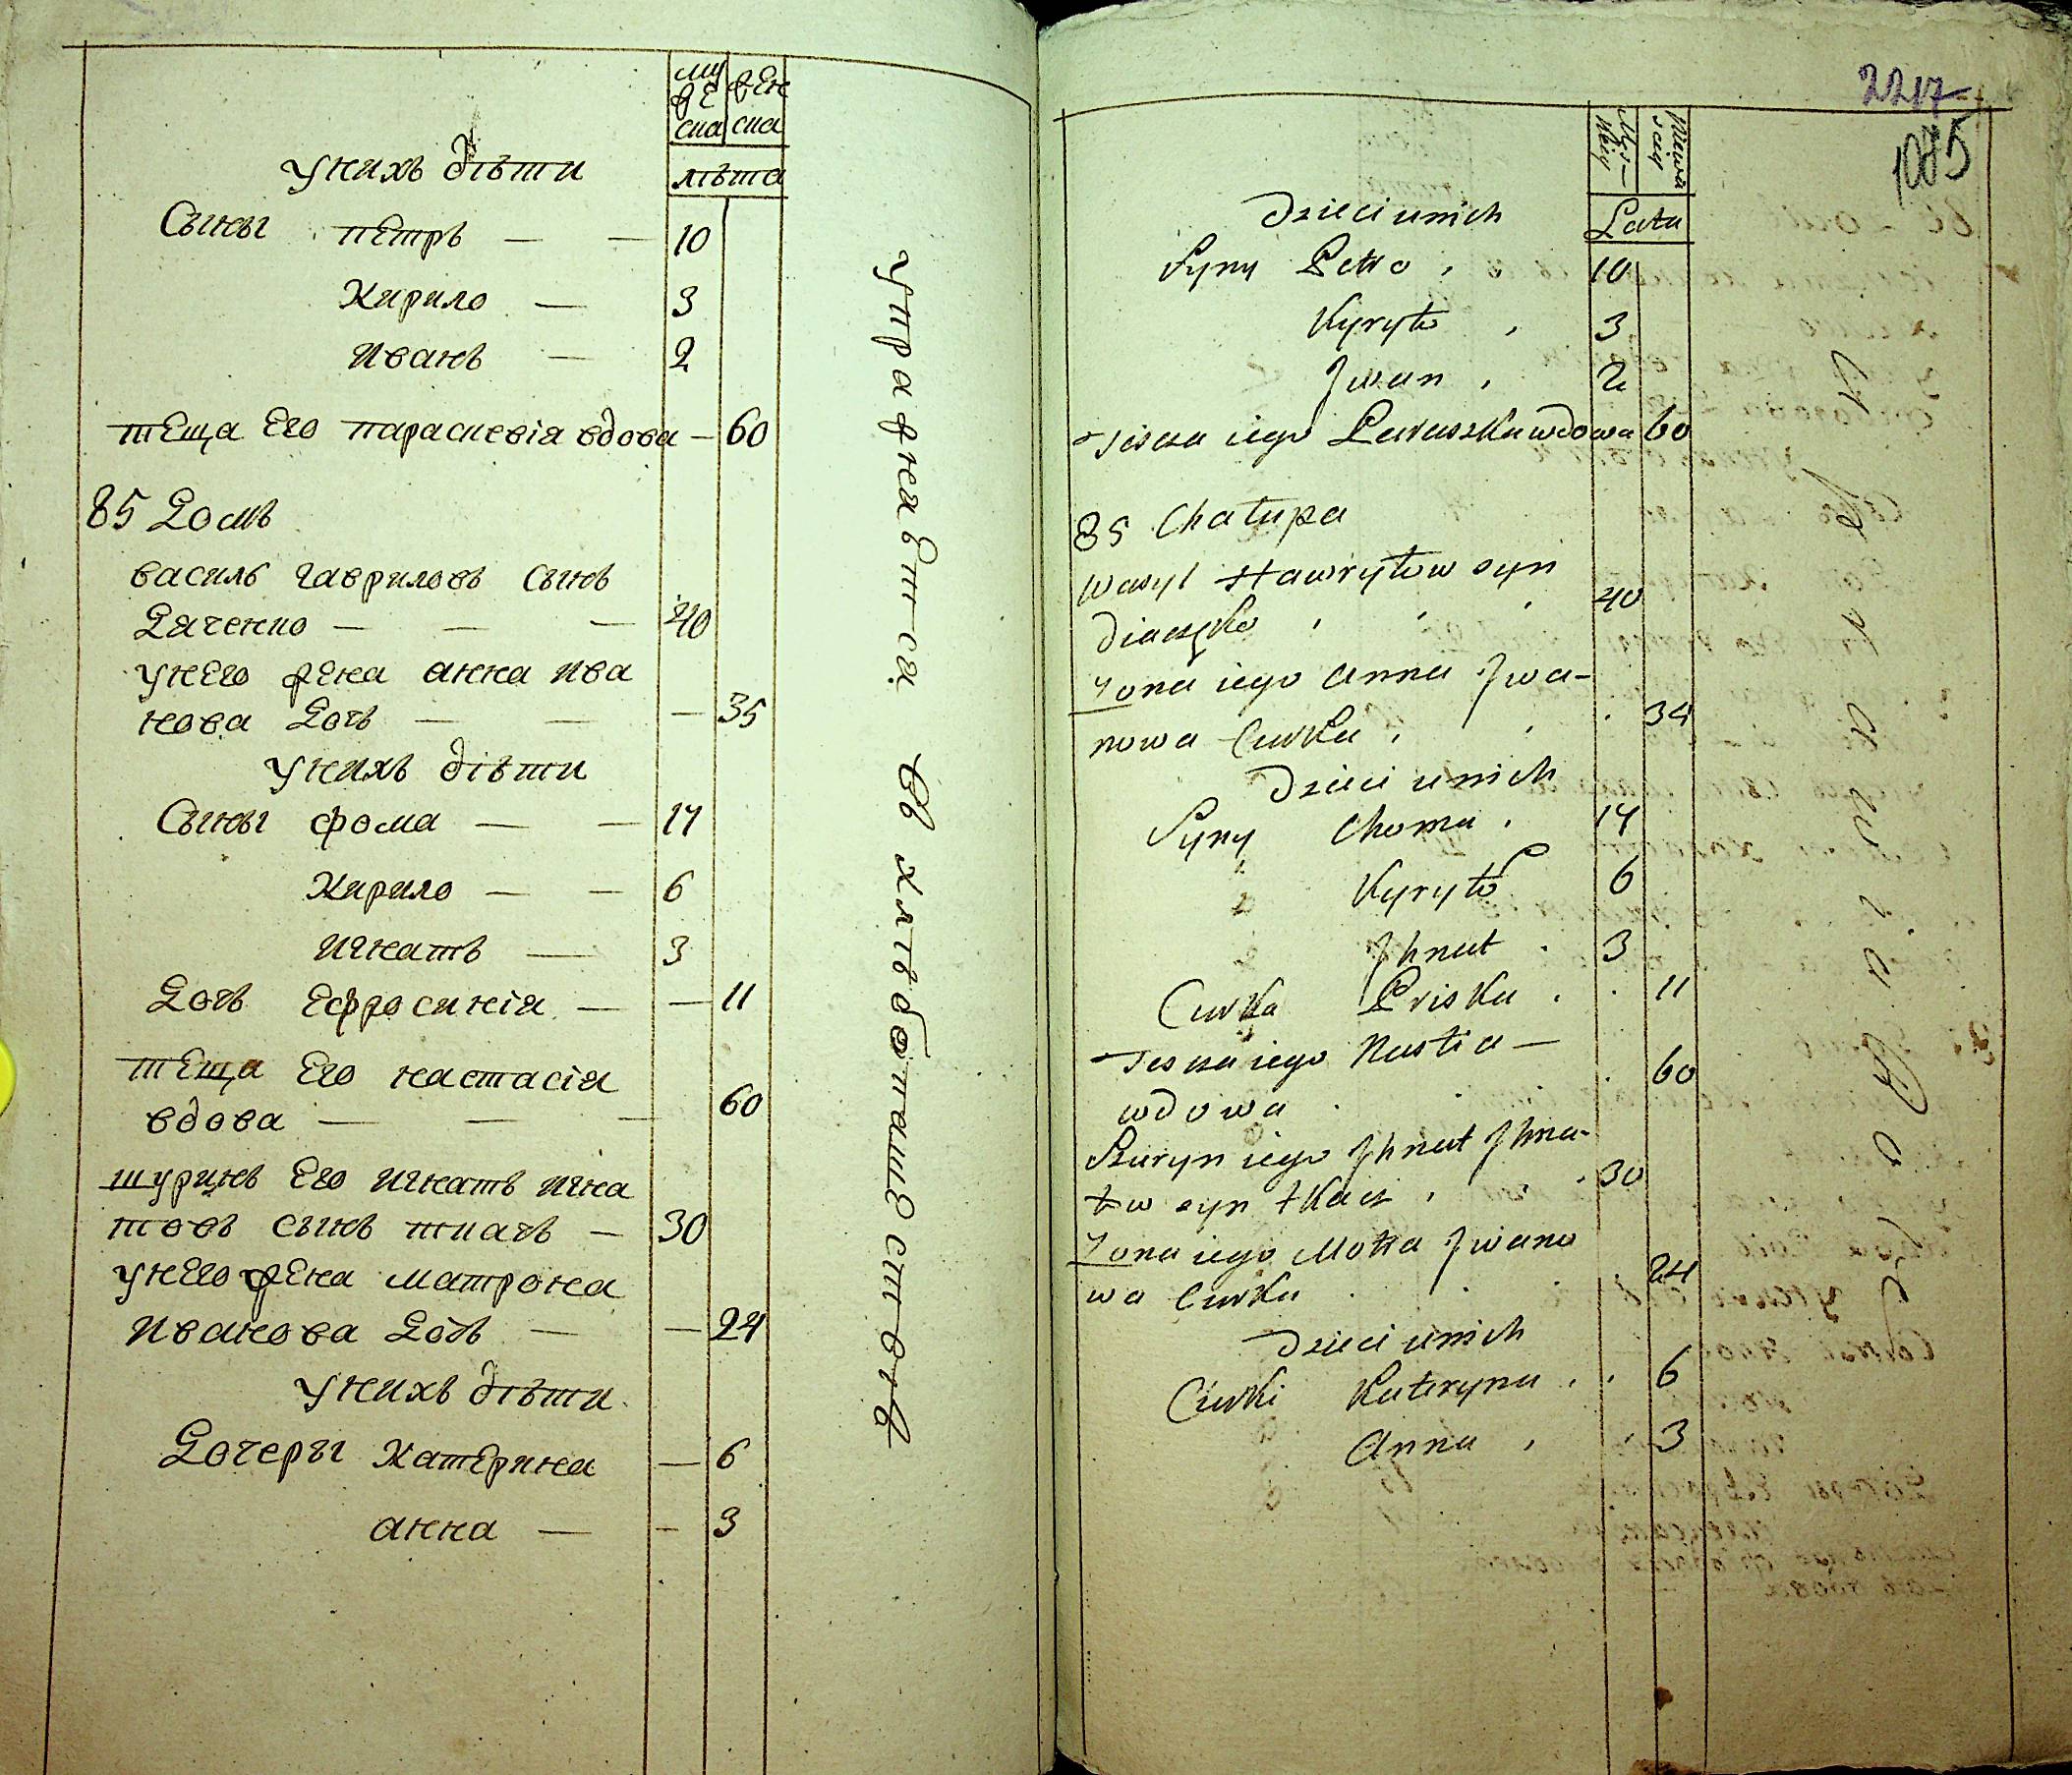 муже
ска
жен
ска
лѣта
у нихъ дѣти
Сыны петръ — — 10
Кирило — 3
иванъ — 2
теща Его параскевія вдова — 60
85 Домъ
василь гавриловъ сынъ
Дяченко — — — 40
у него жена анна ива
нова Дочь — — — 35
у нихъ дѣти
Сыны фома — — 14
Кирило — — 6
игнатъ — 3
Дочь Ефросинія — — 11
теща Его настасія
вдова — — — 60
шуринъ Его игнатъ игна
товъ сынъ ткачь — 30
у него жена матрона
иванова Дочь — — 24
у нихъ дѣти
Дочеры Катерина — 6
анна — — 3
упражняется въ хлѣбопашествѣ
2217
1085
Męs-
kiey
Lata
Dzieci u nich
Syny Petro 10
Kyryło 3
Jwan 2
Tescza iego Paraszka wdowa 60
85 Chałupa
Wasyl Hawryłow syn
Diaczko 40
Zona iego Anna Jwa-
nowa Curka 34
Dzieci u nich
Syny Choma 14
Kyryło 6
Jhnat 3
Curka Priska 11
Tescza iego Nastia —
wdowa 60
Szuryn iego Jhnat Jhna-
tow syn tkacz 30
Zona iego Motra Jwano
wa Curka 24
Dzieci u nich
Curki Kateryna 6
Anna 3